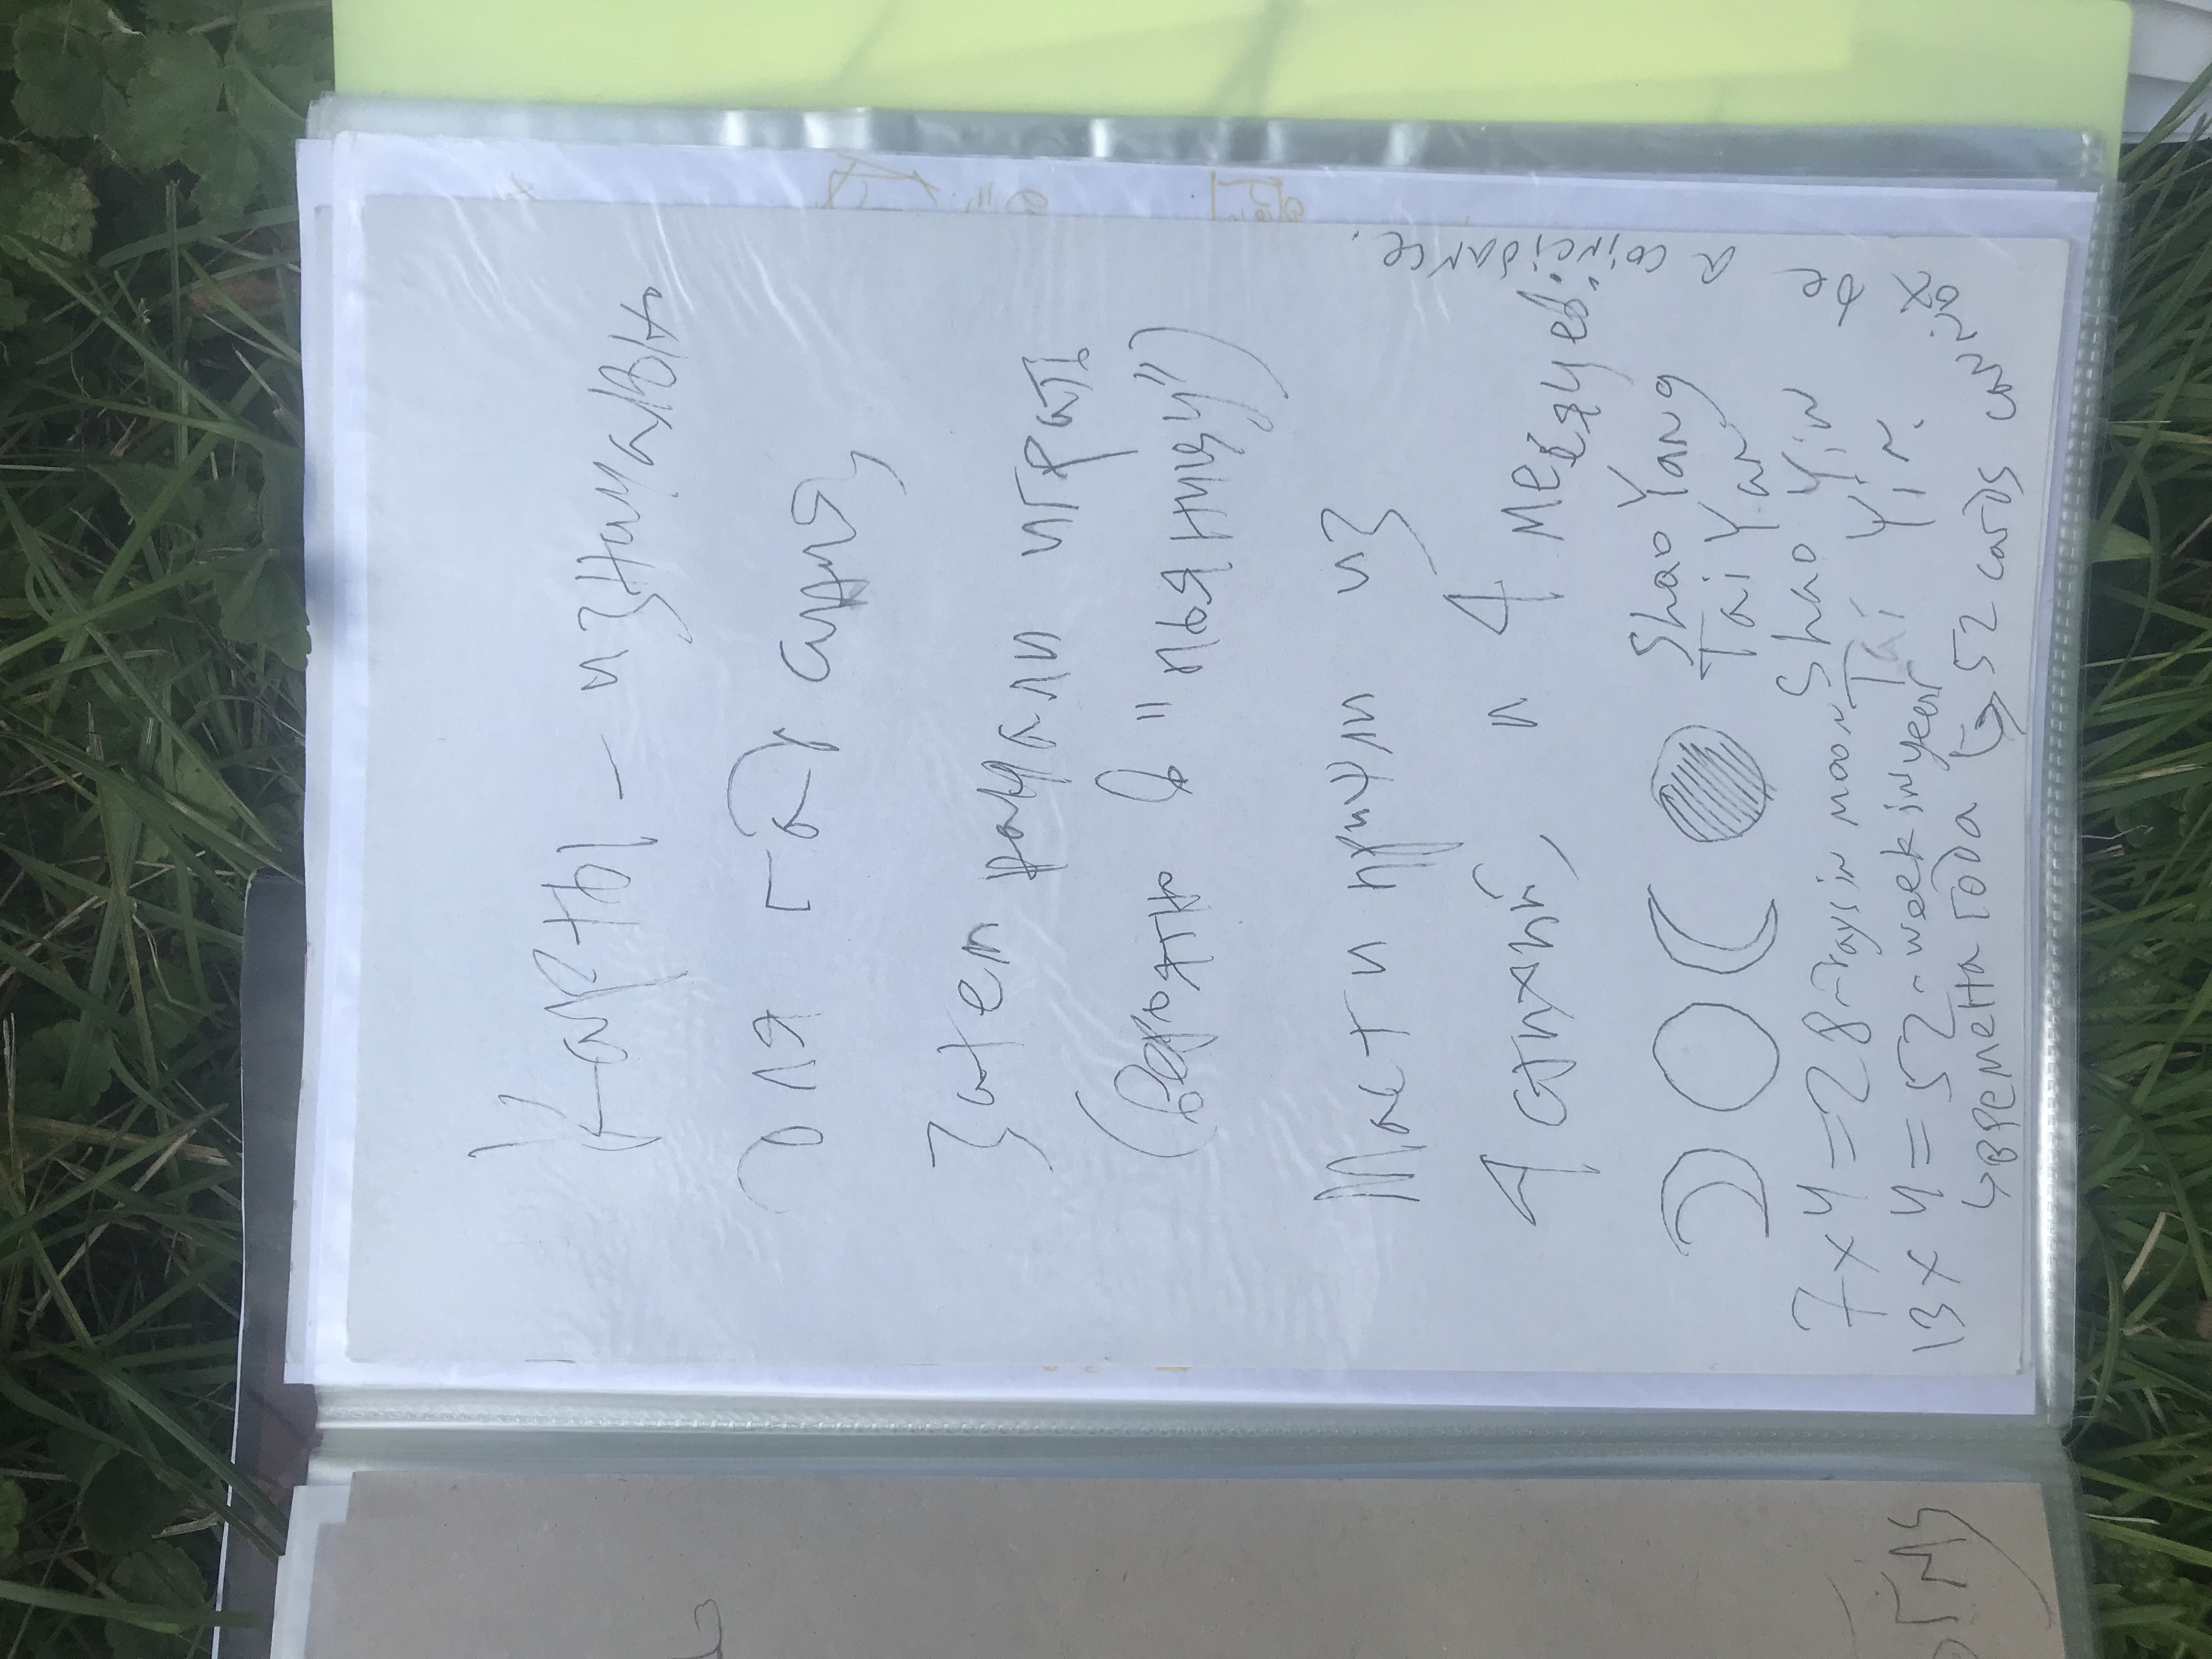 Карты – изначально
для гадания,
Затем начали играть
(вероятно в "пьяницу")
Масти пришли из
4 стихий, и 4 месяцев:
Shao Yang
Tai Yan
Shao Yin
Tai Yin.
7 x 4 = 28 - days in moon
13 x 4 = 52 - week in year
↳ времена года ↳ 52 cards cannot be a coincidance.